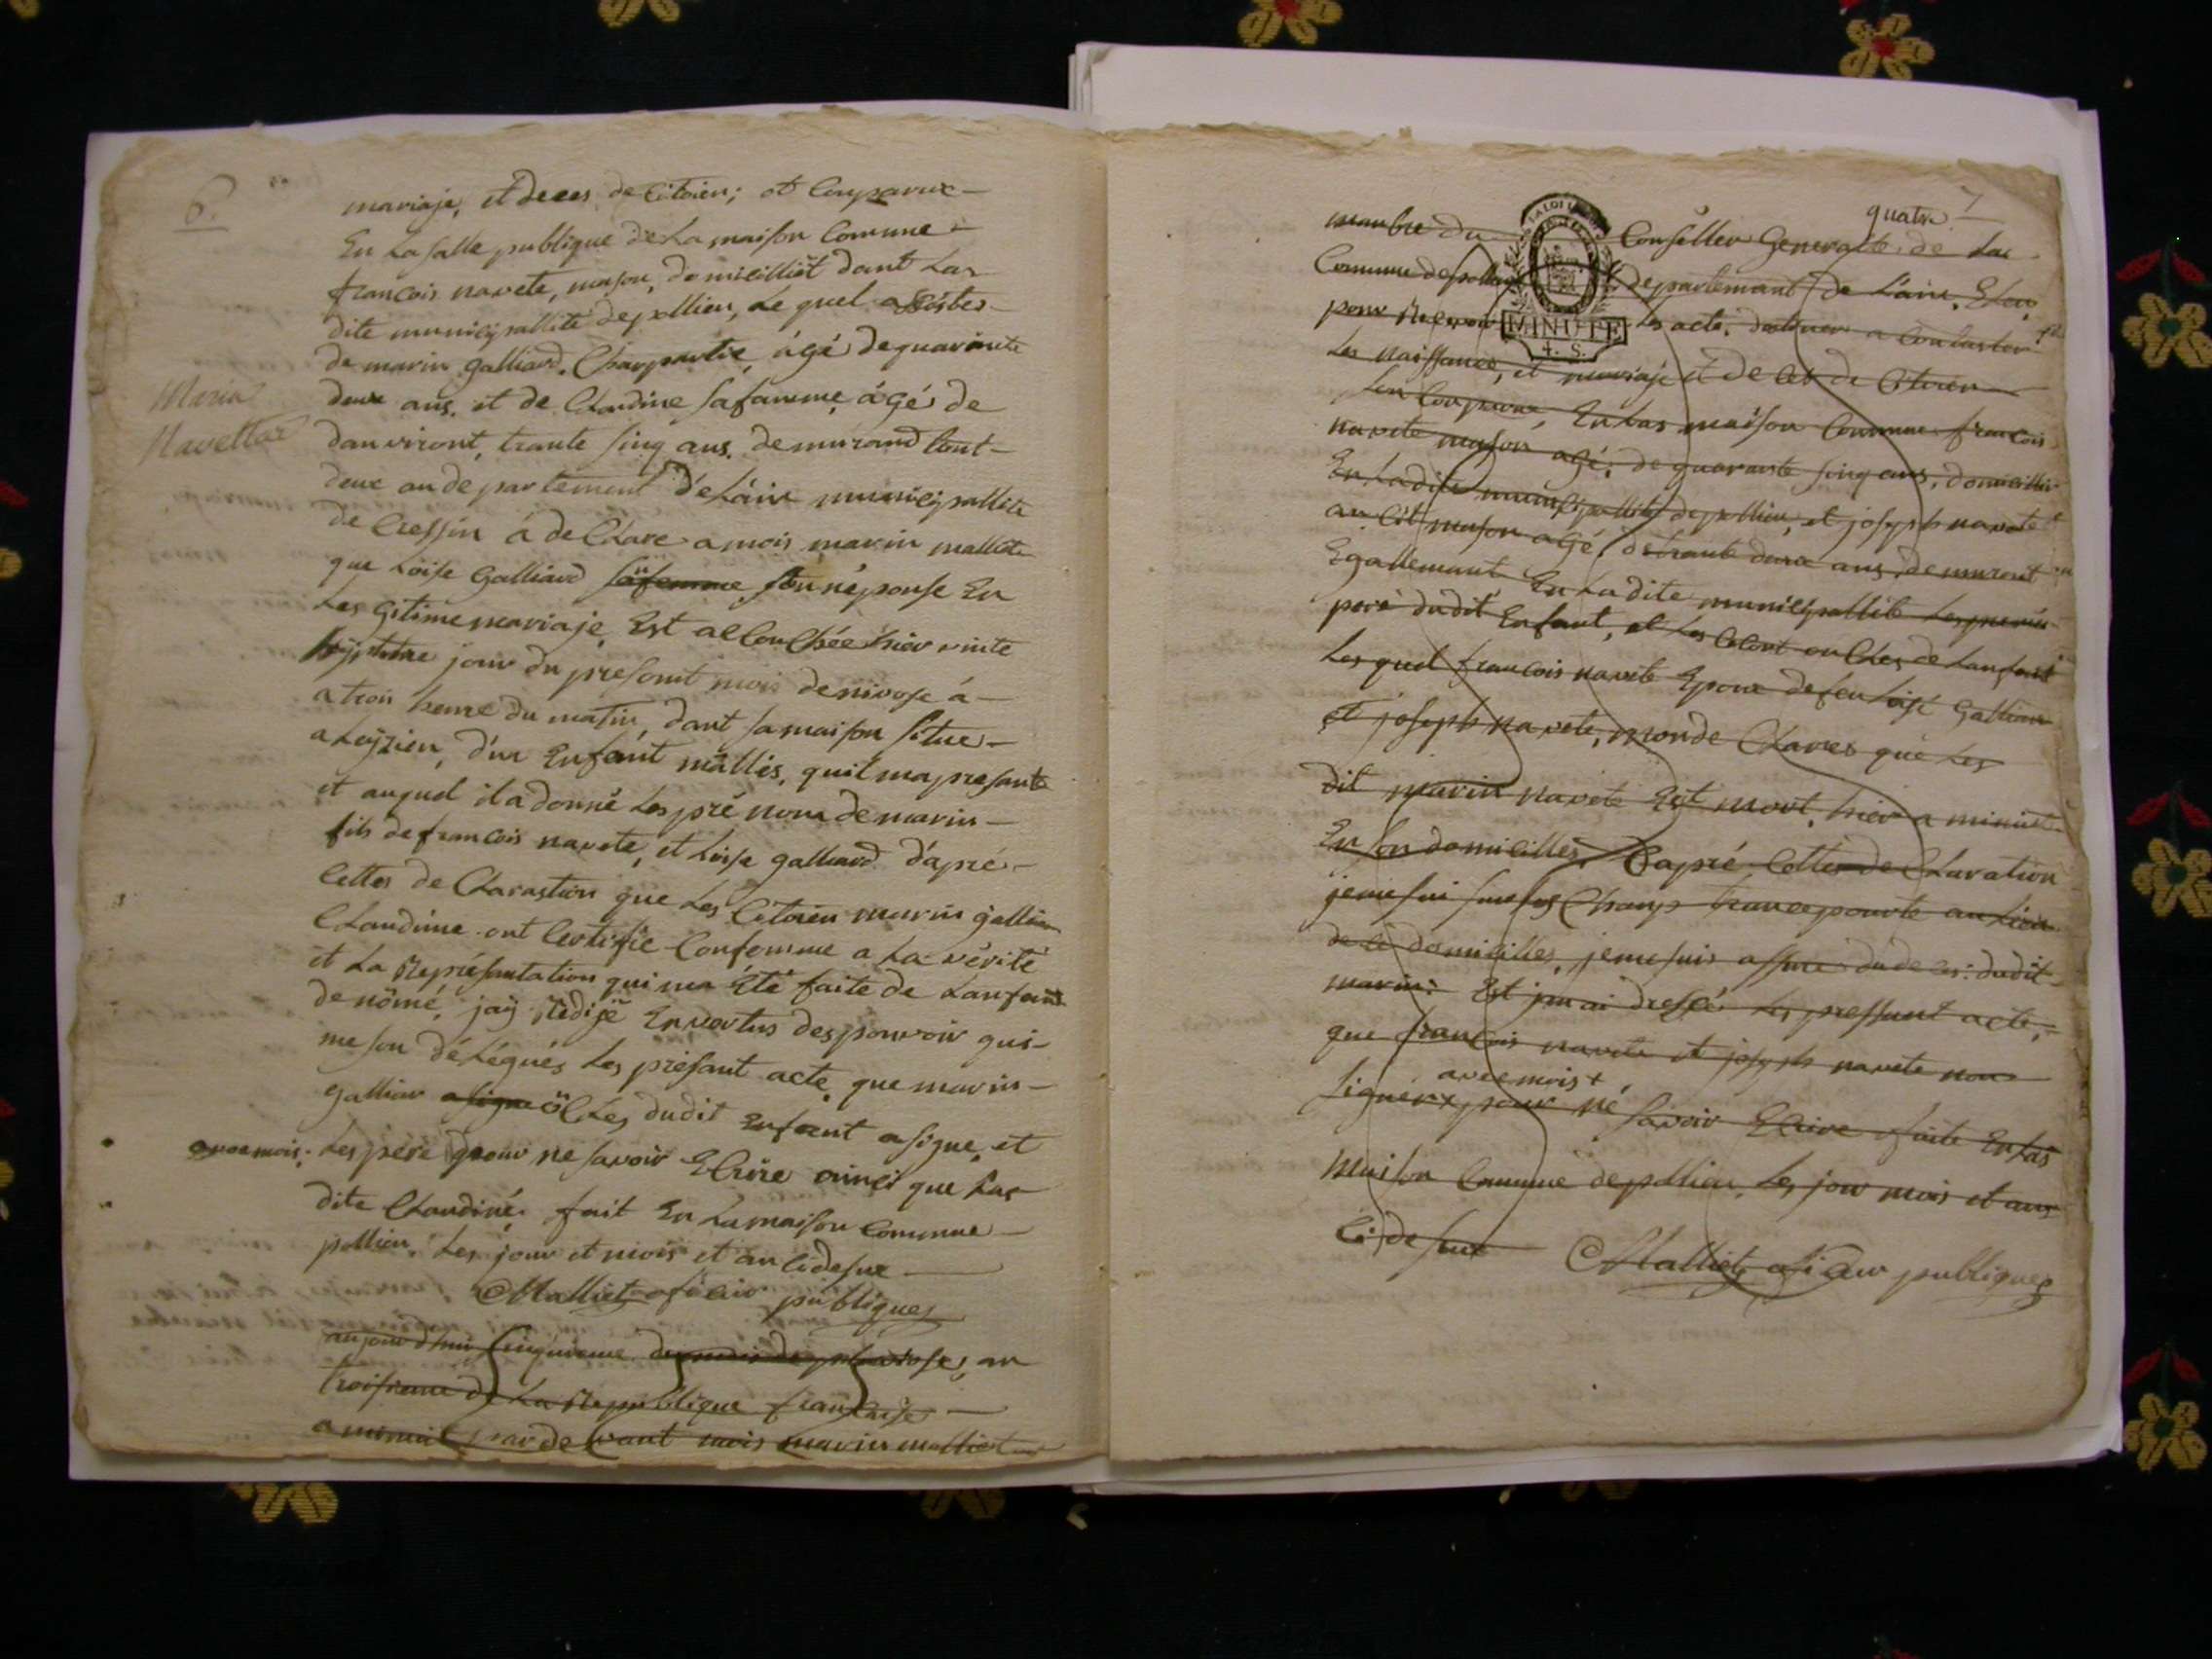 6.
mariaje, et deces de Citoien; et Comparue
En La salle publique de La maison Comune
françois navete, mason, domicilliét dant Las
dite municipallité de pollieu, Le quel assistes
de marin galliard, Charpantie, ágé de quarante
Maria
Navettaz
deux ans. et de Claudine safamme, ágé de
danviront, trante sinq ans. demurand tout
deux au departement de Láin municipallite
de Cressin á de Clare a mois marin malliet
que Loise Galliard sa femme son népouse En
Les Gitime mariaje, Est alCouchée hier vinte
jour du presant mois de nivose á
a trois heure du matin, dant sa maison situe
a Leyzieu, d'un Enfant mâlles, quil ma presanté
et auquel il a donné Les pré nom de marin
fils de francois navete, et Loise galliard d'apré
Cettes de Clarastion que Les Citoien marin gallian
Claudine ont Certifie Confemme a La vérité
et La Représantation qui ma Été faite de Lanfant
de nômé, jaÿ Rédijé En vertus des pouvoir qui
me son délégués Les présant acte, que marin
galliar a signe önCles dudit Enfant a signe, et
avec mois. Les père pour ne savoir ECrire ainsi que Las
dite Claudine. fait En La maison Commune
pollieu, Les jour et mois et an cidesue
Malliet oficier publiques
aujourdhui sinquieme des mois de pluviose, an
troisieme de La Republique française
a minuit par de vant mois marin malliet
quatre 7
manbre du Conseiller Generalle de Las
Commune de pollieu departemant de Láin. Elu,
pour Recevoir Les acte. destiner a Constater
Les naissance, et mariaje et de ces de Citoien
son Comparue, En Las maison Commune francois
navete mason agé, de quarante sinq ans, domicillié
En Ladite municipallité de pollieu, et joseph navete
au Cit mason agé, de trante deux ans, demurant
Egallemant En Ladite municipallité Les premié
peré dudit Enfant, et Les segont onCles de Lanfant
Les quel francois navete Epoux de feu Loise Galliar
et joseph navete, mon de Clares que Les
dit marin navete Est mort, hier a minuit
En son domicilles, Dapré Cettes de Claration
je me sui sur Les Champ transepourte au Lieu
de Ce domicilles, je me suis assure du deces: dudit
marin: Est jen ai dressé Les pressant acte,
que francois navete et joseph navete non
avec mois +
signér + pour né savoir ECrire faite En Las
maison Commune de pollieu, Les jour mois et ans
Ci desue Malliet ofisier publiques
MINUTE
4. S.